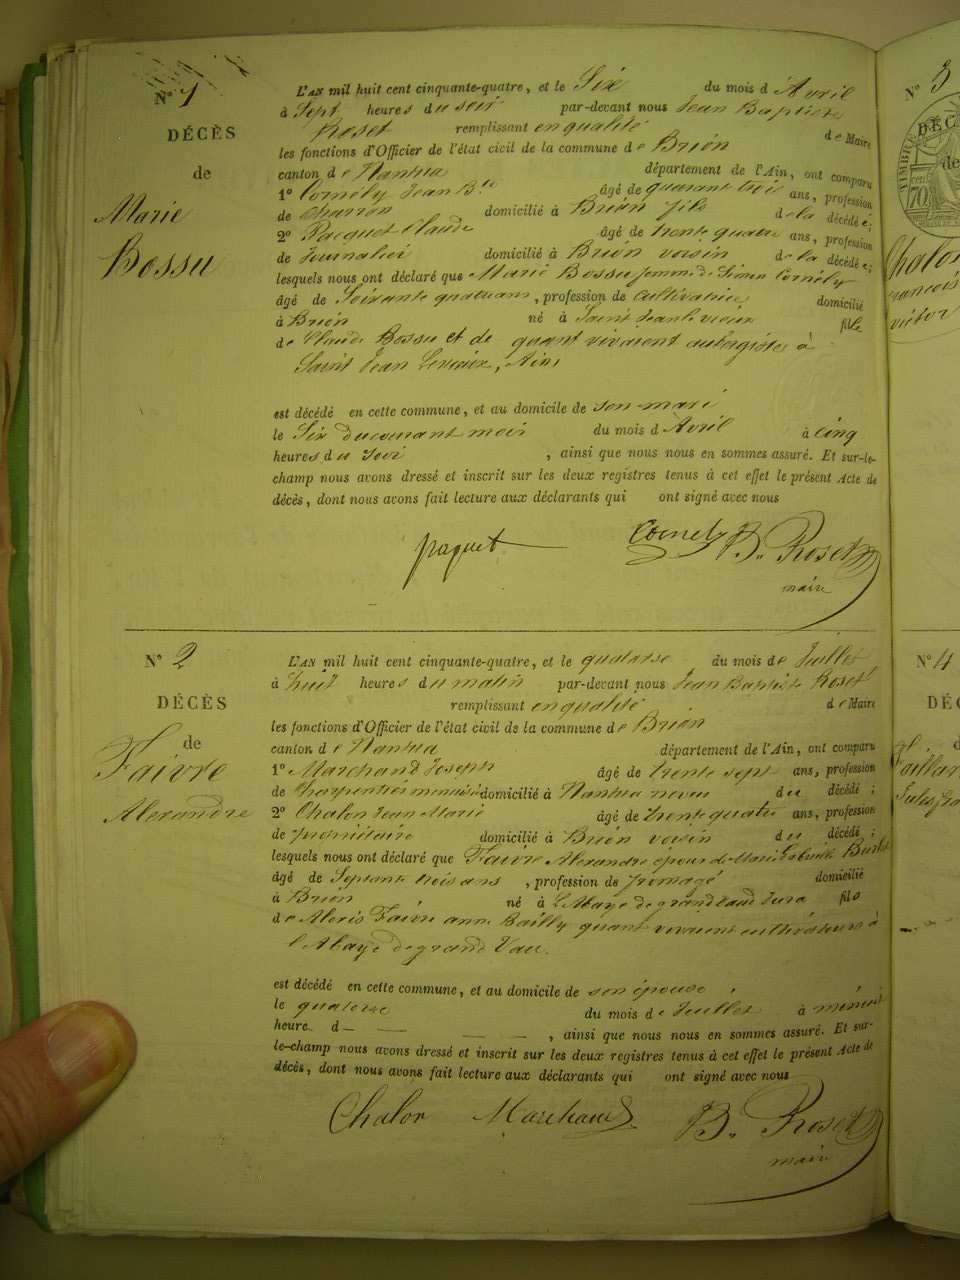 N° 1
DÉCÈS
de
Marie
Bossu
L'AN mil huit cent cinquante-quatre, et le Six du mois d Avril
à Sept heures du soir par-devant nous Jean Baptiste
Roset remplissant en qualité de Maire
les fonctions d'Officier de l'état civil de la commune de Brion
canton de Nantua département de l'Ain, ont comparu
1° Cornély Jean Bte âgé de quarant trois ans, profession
de Charron domicilié à Brion fils de la décédée;
2° Pacquet Claude âgé de trente quatre ans, profession
de Journalier domicilié à Brion voisin de la décédée;
lesquels nous ont déclaré que Marie Bossu femme de Simon Cornély
âgé de Soixante quatre ans, profession de cultivatrice domicilié
à Brion né à Saint Jean le vieux fille
de Claude Bossu et de quant vivaient aubagistes à
Saint Jean Levieux, Ain,
est décédé en cette commune, et au domicile de son mari
le Six du courant mois du mois d Avril à cinq
heures du Soir, ainsi que nous nous en sommes assuré. Et sur-le-
champ nous avons dressé et inscrit sur les deux registres tenus à cet effet le présent Acte de
décès, dont nous avons fait lecture aux déclarants qui ont signé avec nous
paquet Cornely B. Roset
maire
N° 2
DÉCÈS
de
Faivre
Alexandre
L'AN mil huit cent cinquante-quatre, et le quatorse du mois de Juillet
à huit heures du matin par-devant nous Jean Baptiste Roset
remplissant en qualité de Maire
les fonctions d'Officier de l'état civil de la commune de Brion
canton de Nantua département de l'Ain, ont comparu
1° Marchand Joseph âgé de trente sept ans, profession
de Charpentier menuisié domicilié à Nantua neveu du décédé;
2° Chalon Jean Marie âgé de trente quatre ans, profession
de propriétaire domicilié à Brion voisin du décédé;
lesquels nous ont déclaré que Faivre Alexandre époux de Marie Gabrielle Burlet
âgé de Septante trois ans, profession de fromagé domicilié
à Brion né à l'Abaye de grandvaud Jura fils
de Alexis Faivre anne Bailly quant vivaient cultivateurs à
l'Abaye de grand Vau.
est décédé en cette commune, et au domicile de son épouse
le quatorse du mois de Juillet à minuit
heure d— — — —, ainsi que nous nous en sommes assuré. Et sur-
le-champ nous avons dressé et inscrit sur les deux registres tenus à cet effet le présent Acte de
décès, dont nous avons fait lecture aux déclarants qui ont signé avec nous
Chalon Marchand B. Roset
maire
N° 3
DÉC
de
TIMBRE
70
Chalon
François
victor
N° 4
DÉC
d